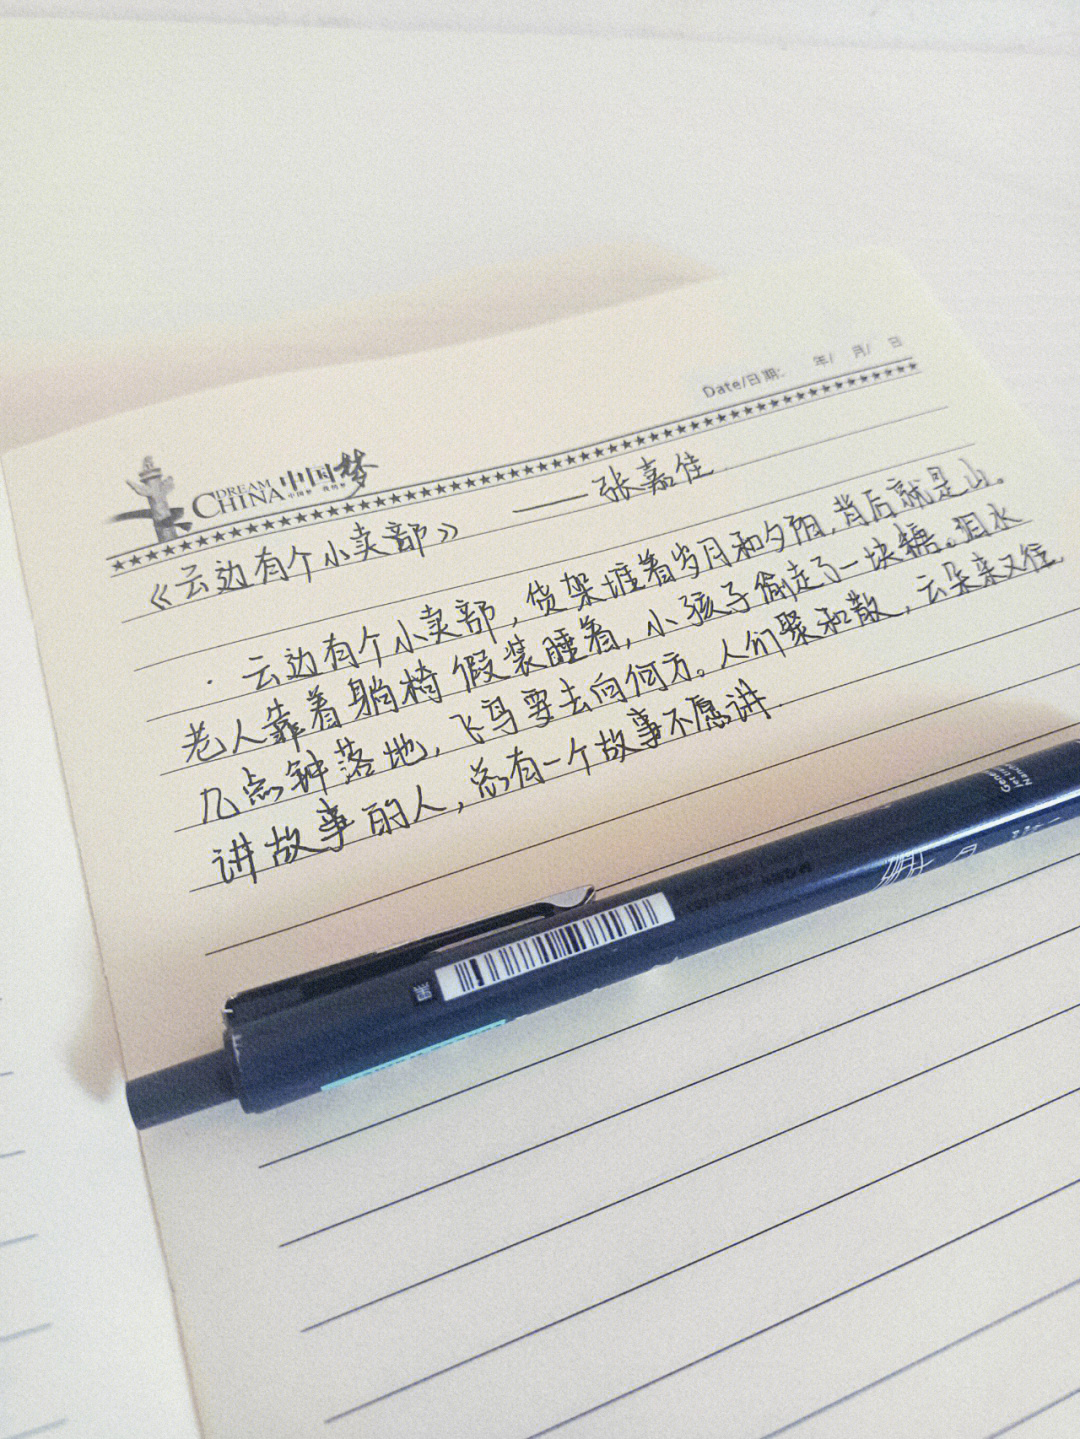 Date/日期: 年/ 月/ 日
DREAM
CHINA 中国梦
《云边有个小卖部》 ——张嘉佳
云边有个小卖部，货架堆着岁月和夕阳，背后就是山。
老人靠着躺椅假装睡着，小孩子偷走了一块糖。泪水
几点钟落地，飞鸟要去向何方。人们聚和散，云朵来又往
讲故事的人，总有一个故事不愿讲.
黑